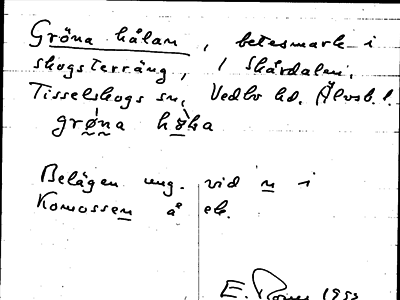 Gröna hålan, betesmark i
skogsterräng, i Skårdalen,
Tisselskogs sn, Vedbo hd. Älvsb. l.
grø̀na hǫ̀la
Belägen ung. vid n i
Komossen å ek.
E. 1953